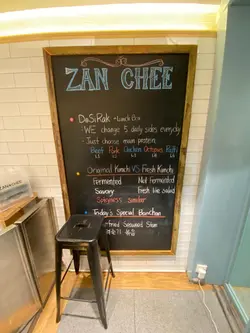 ZAN CHEE
DoSiRak - Lunch Box
- WE change 5 daily sides everyday
- Just choose main protein.
Beef Pork Chicken Octopus Tofu
Original Kimchi VS Fresh Kimchi
Fermented Not Fermented
Savory Fresh like salad
Spicyness similar
Today's Special Banchan
Fried Seaweed Stem